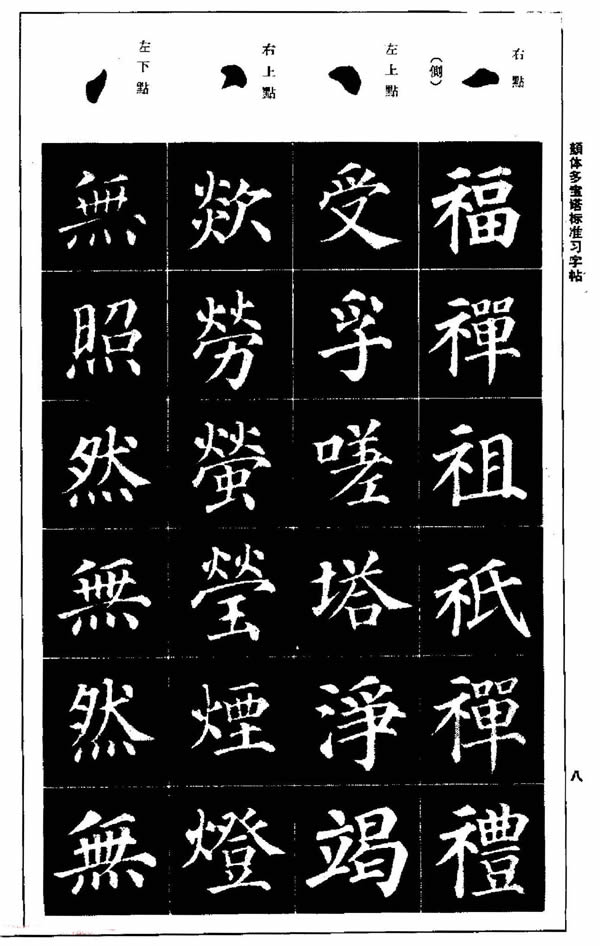 顏体多宝塔标准习字帖
八
右點
(側)
福禪祖祇禪禮
左上點
受孚嗟塔淨竭
右上點
欻勞螢瑩煙燈
左下點
無照然無然無